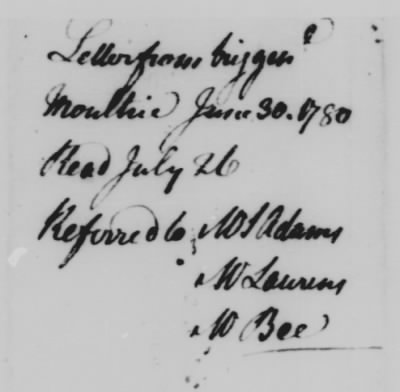 Letter from brigger.l
Moultrie June 30. 1780
Read July 26
Referred to Mr S Adams
Mr Laurens
Mr Bee